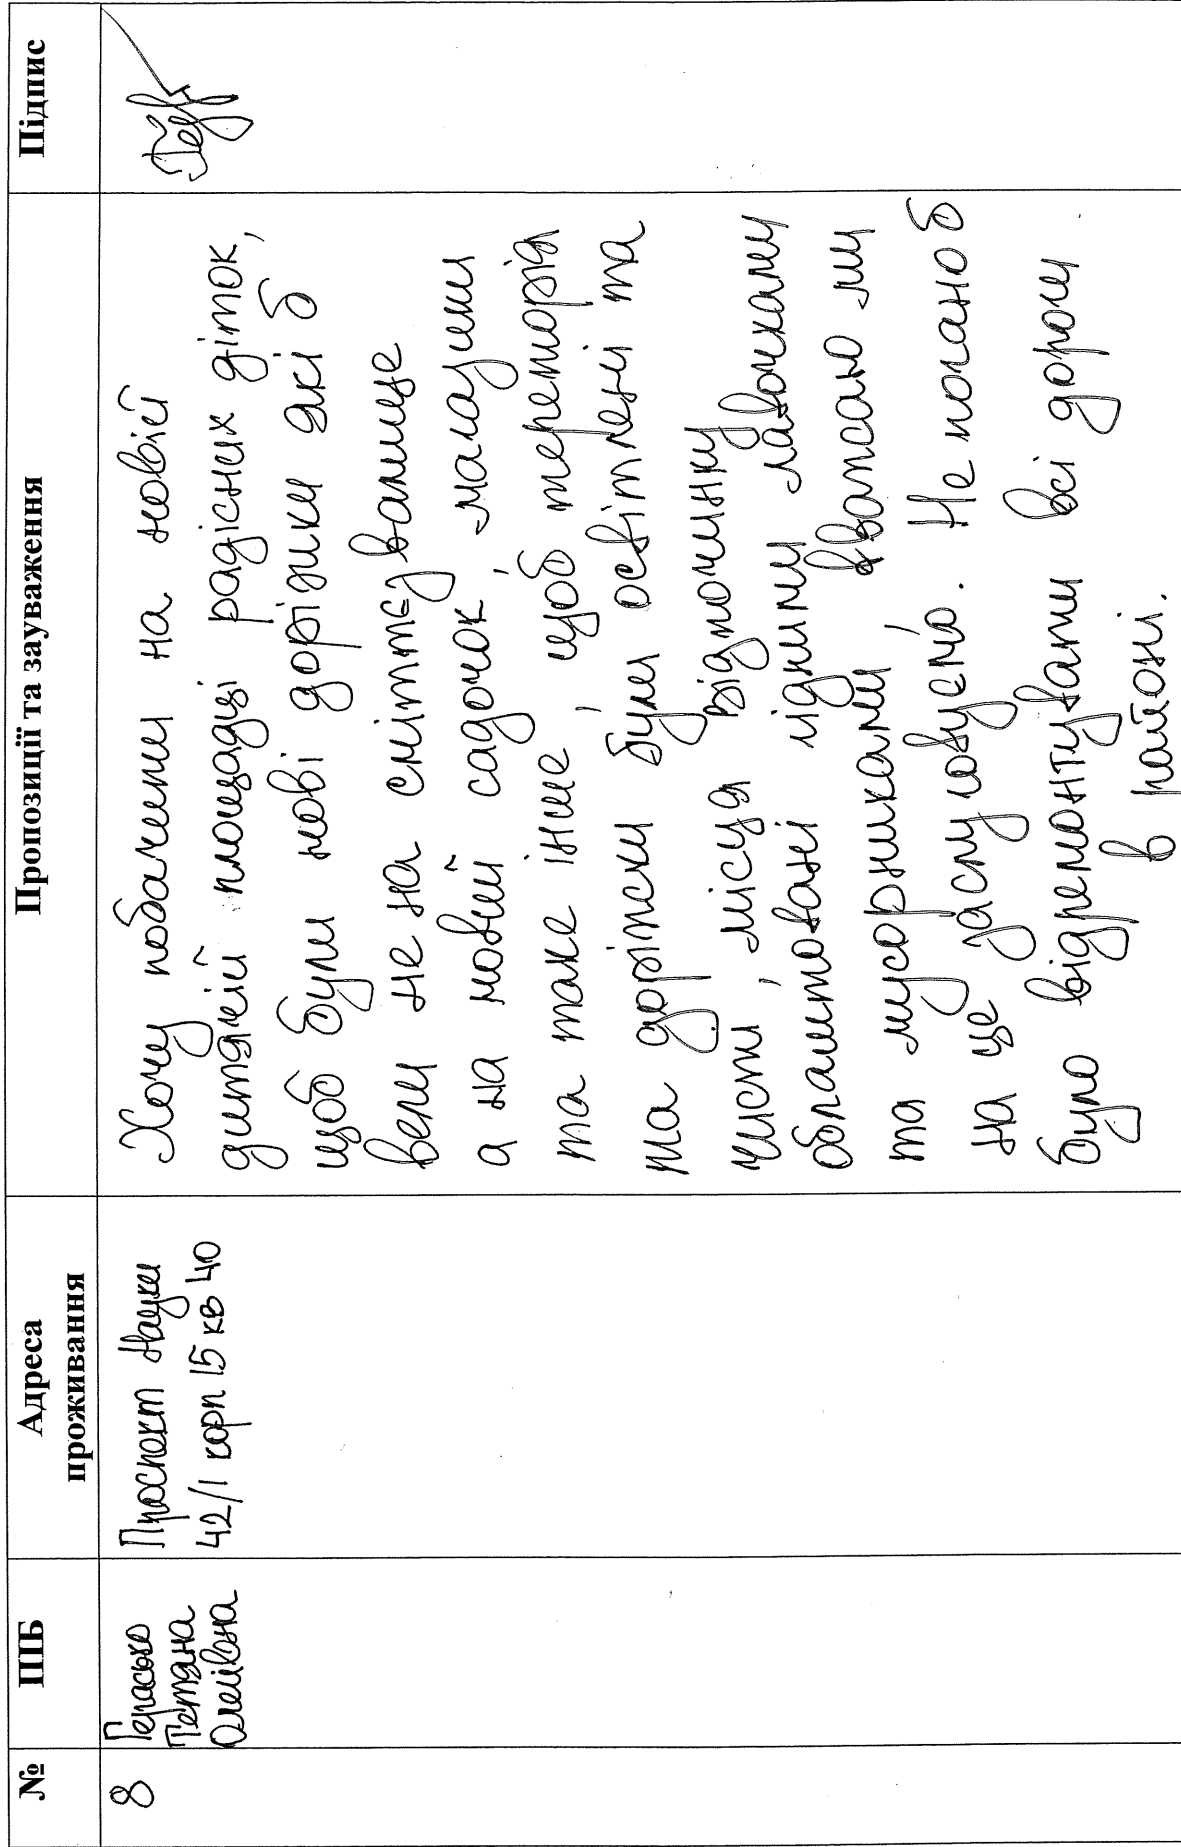 №
ПІБ
Адреса
проживання
Пропозиції та зауваження
Підпис
8
Герасько
Тетяна
Олеіївна
Проспект Науки
42/1 корп 15 кв 40
Хочу побачити на новій
дитячій площадці радісних діток,
щоб були нові доріжки які б
вели не на сміттєзвалище
а на новий садочок, магазини
та таке інше, щоб територія
та доріжки були освітлені та
чисті, місця відпочинку
облаштовані гідними лавочками
та мусорниками, вважаю ми
на це заслуговуємо. Непогано б
було відремонтувати всі дороги
в районі.